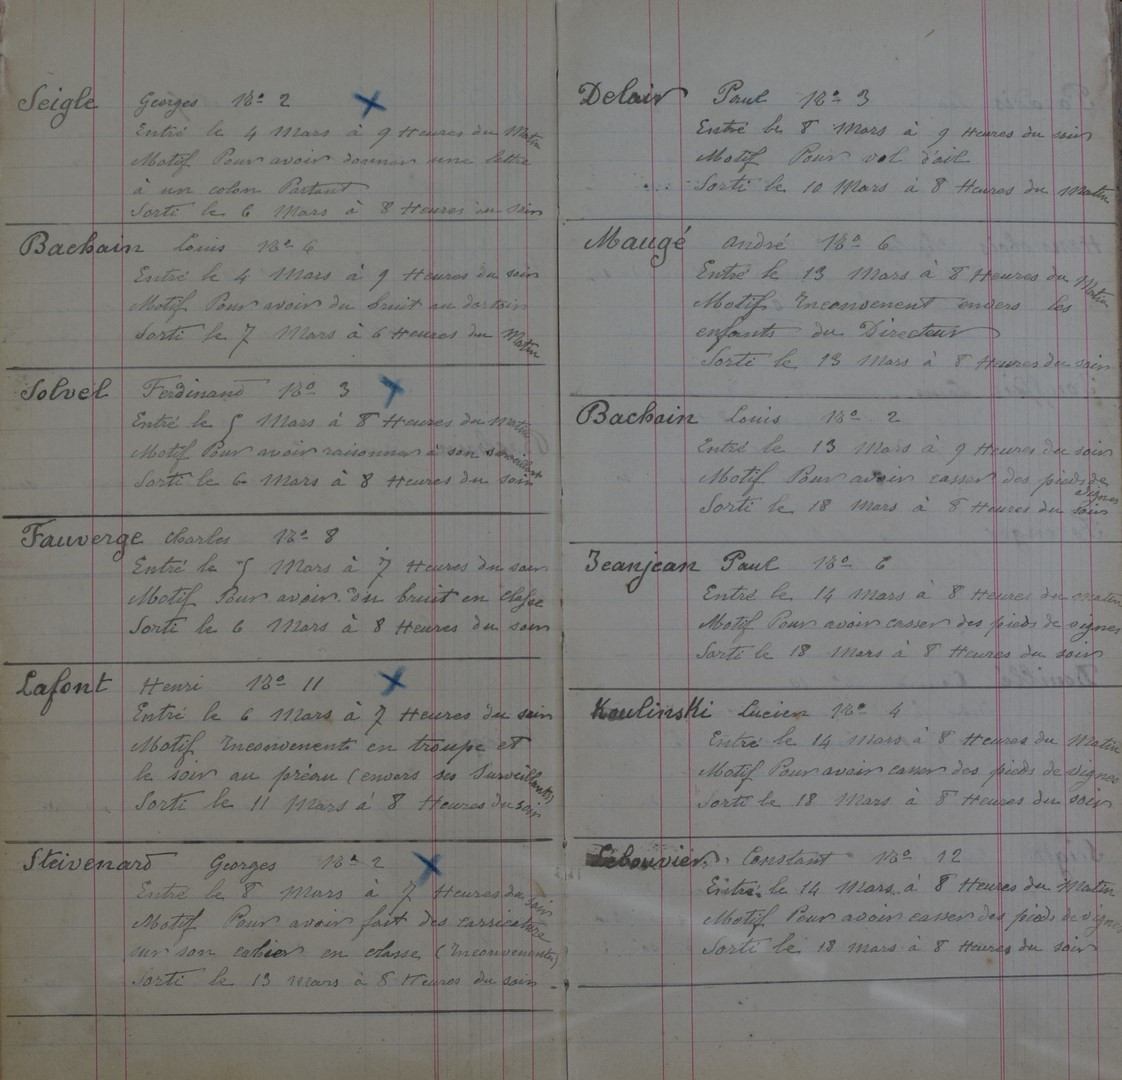 Seigle Georges No 2
Entré le 4 Mars à 9 Heures du Matin
Motif Pour avoir donner une lettre
à un colon Partant
Sorti le 6 Mars à 8 Heures du soir
Bachain Louis No 6
Entré le 4 Mars à 9 Heures du soir
Motif Pour avoir du bruit au dortoir
Sorti le 7 Mars à 6 Heures du Matin
Solvel Ferdinand No 3
Entré le 5 Mars à 8 Heures du Matin
Motif Pour avoir raisonner à son surveillant
Sorti le 6 Mars à 8 Heures du soir
Fauverge Charles No 8
Entré le 5 Mars à 7 Heures du soir
Motif Pour avoir du bruit en classe
Sorti le 6 Mars à 8 Heures du soir
Lafont Henri No 11
Entré le 6 Mars à 7 Heures du soir
Motif Inconvenent en troupe et
le soir au préau (envers ses Surveillants)
Sorti le 11 Mars à 8 Heures du soir
Steivenard Georges No 2
Entré le 8 Mars à 7 Heures du soir
Motif Pour avoir fait des carricature
sur son cahier en classe (Inconvenentes)
Sorti le 13 Mars à 8 Heures du soir
Delair Paul No 3
Entré le 8 Mars à 9 Heures du soir
Motif Pour vol d'ail
Sorti le 10 Mars à 8 Heures du Matin
Maugé André No 6
Entré le 13 Mars à 8 Heures du Matin
Motif Inconvenent envers les
enfants du Directeur
Sorti le 13 Mars à 8 Heures du soir
Bachain Louis No 2
Entré le 13 Mars à 9 Heures du soir
Motif Pour avoir casser des pieds de vignes
Sorti le 18 Mars à 8 Heures du soir
Jeanjean Paul No 6
Entré le 14 Mars à 8 Heures du matin
Motif Pour avoir casser des pieds de vignes
Sorti le 18 Mars à 8 Heures du soir
Koulinski Lucien No 4
Entré le 14 Mars à 8 Heures du Matin
Motif Pour avoir casser des pieds de vignes
Sorti le 18 Mars à 8 Heures du soir
Lebouvier Constant No 12
Entré le 14 Mars à 8 Heures du Matin
Motif Pour avoir casser des pieds de vignes
Sorti le 18 Mars à 8 Heures du soir